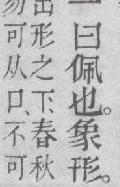 一曰佩也。象形。
出形之下、春秋
勿可从口、不可